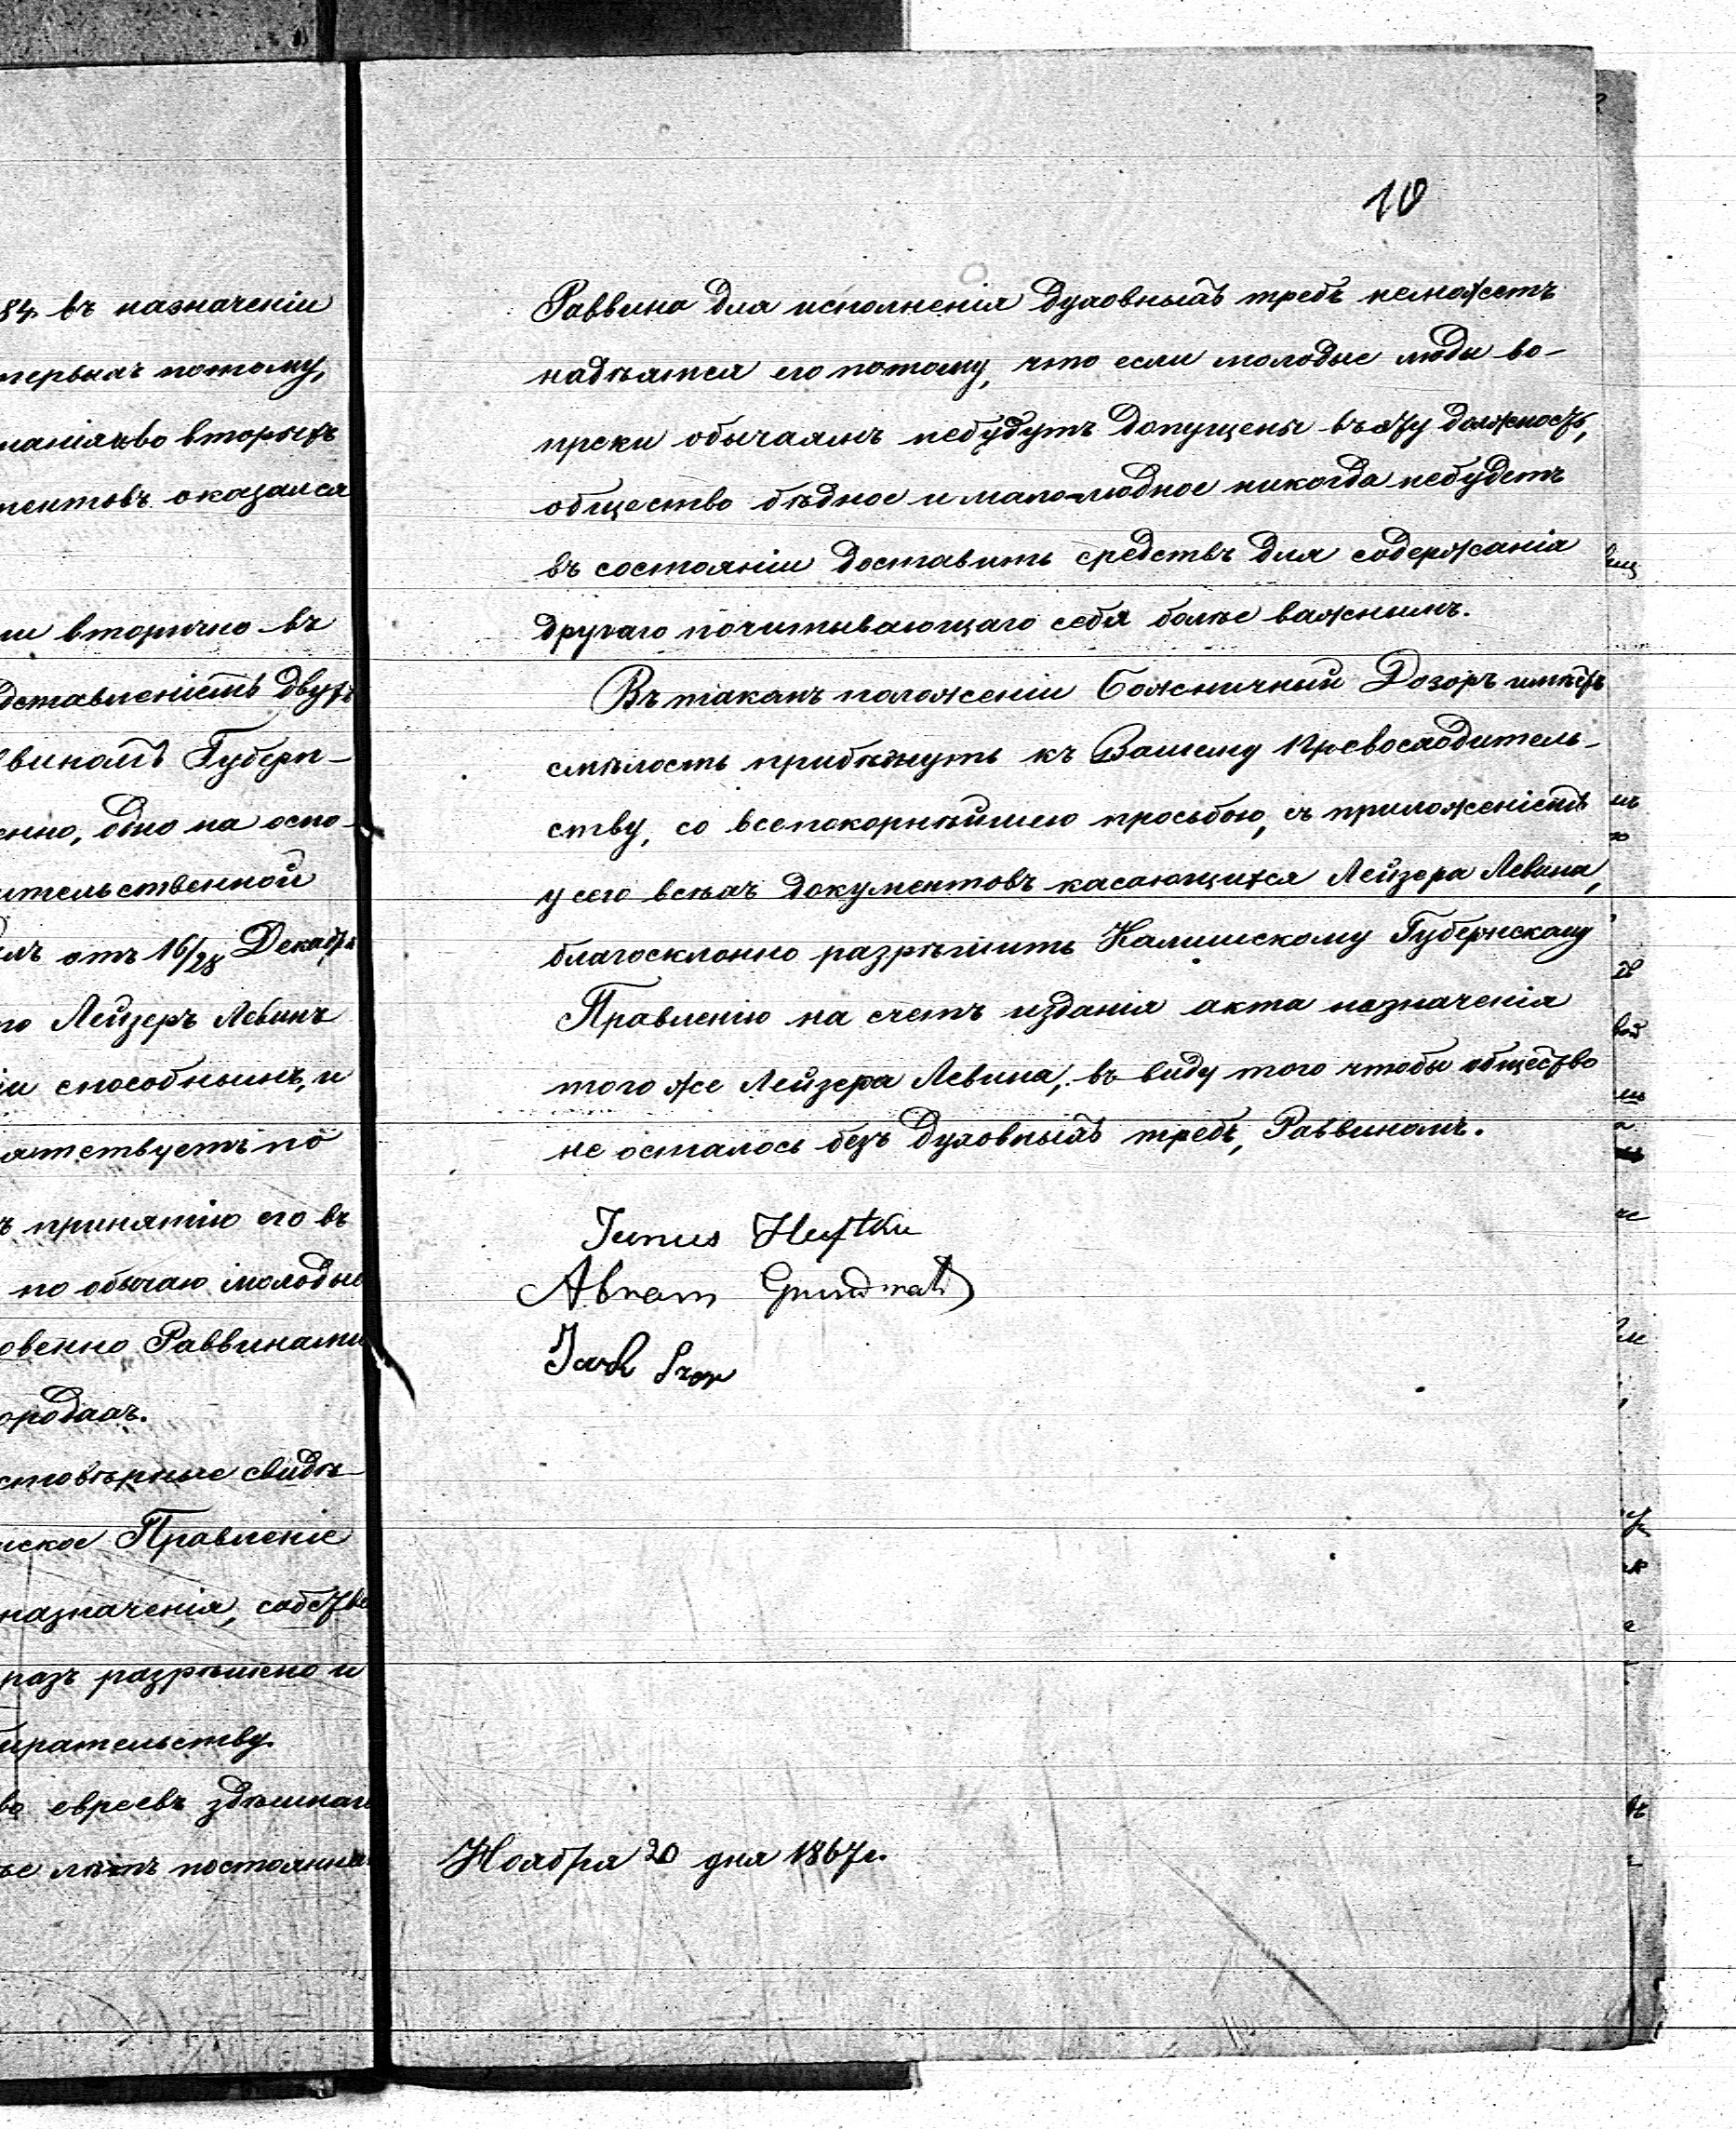 84. въ назначеніи
первыхъ потому,
маніи во вторыхъ
ментовъ оказался
ми вторично въ
дставленіемъ двухъ
ввиномъ Губерн-
енно, одно на осно-
ительственной
отъ 16/28 Декабря
то Лейзеръ Левинъ
способнымъ, и
ятствуетъ по
ъ принятію его въ
по обычаю молодые
овенно Раввинами
ородахъ.
стовѣрные свидѣ-
нское Правленіе
назначенія, собстве
разъ разрѣшено и
ирательству.
во евреевъ здѣшнаго
ье лѣтъ постоянна
10
Раввина для исполненія духовныхъ требъ неможетъ
надѣятся его потому, что если молодые люди во-
преки обычаямъ небудутъ допущены въ эту должность,
общество бѣдное и мало-людное никогда небудетъ
въ состояніи доставить средствъ для содержанія
другаго почитывающаго себя болѣе важнымъ.
Въ такомъ положеніи Божничный Дозоръ имѣетъ
смѣлость прибѣгнуть къ Вашему Превосходитель-
ству, со всепокорнѣйшею просьбою, съ приложеніемъ
у сего всѣхъ документовъ касающихся Лейзера Левина,
благосклонно разрѣшить Калишскому Губернскому
Правленію на счетъ изданія акта назначенія
того же Лейзера Левина, въ виду того чтобы общество
не осталось безъ духовныхъ требъ, Раввиномъ.
Abram
Ноября 20 дня 1867 г.